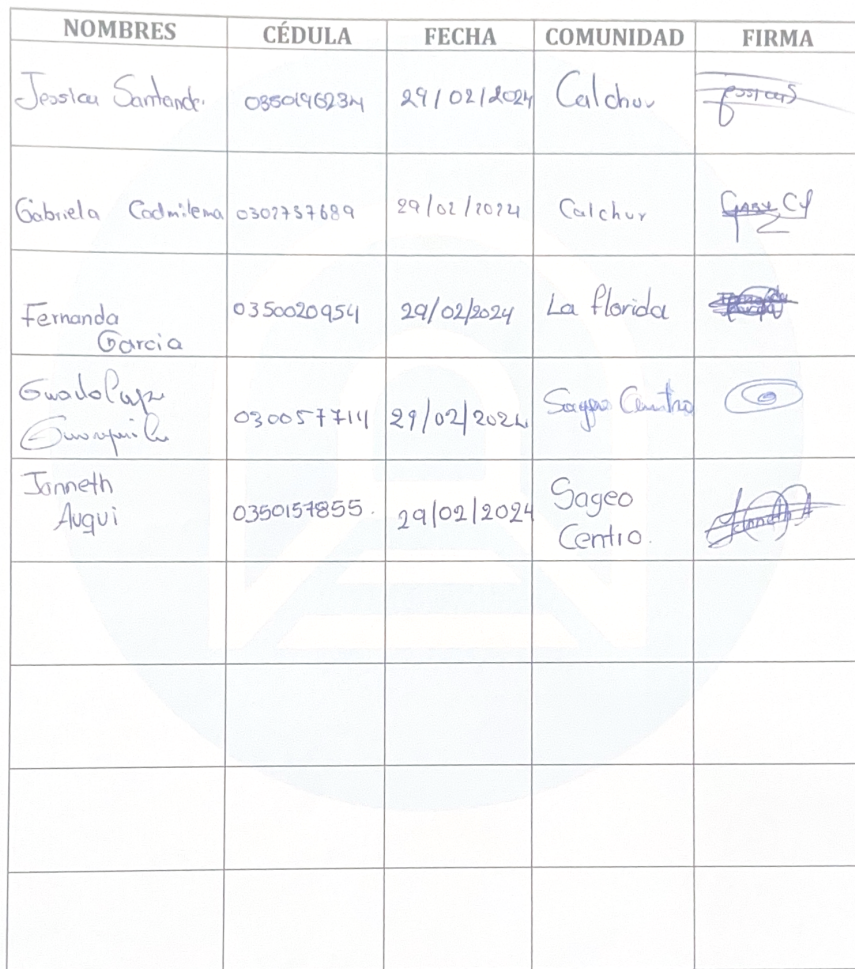 NOMBRES CÉDULA FECHA COMUNIDAD FIRMA
Jessica Santander. 0350196234 29/02/2024 Calchur
Gabriela Cadmilema 0302737689 29/02/2024 Calchur
Fernanda 0350020954 29/02/2024 La florida
Garcia
Guadalupe 29/02/2024 Sageo Centro
Janneth 0350157855. 29/02/2024 Sageo
Auqui Centro.